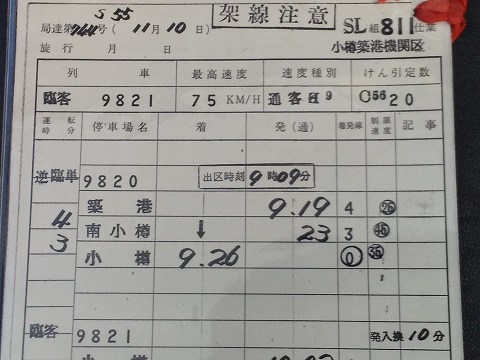 S 55
架線注意
局達第744号 (11月10日)
SL組811仕業
施行 月 日
小樽築港機関区
列車 最高速度 速度種別 けん引定数
臨客 9821 75 KM/H 通客H9 C56 20
運転時分 停車場名 着 発(通) 着発線 制限速度 記事
逆臨単 9820 出区時刻 9時09分
築港 9.19 4 25
4 南小樽 ↓ 23 3 45
3 小樽 9.26 0 35
臨客 9821 発入換10分
小樽